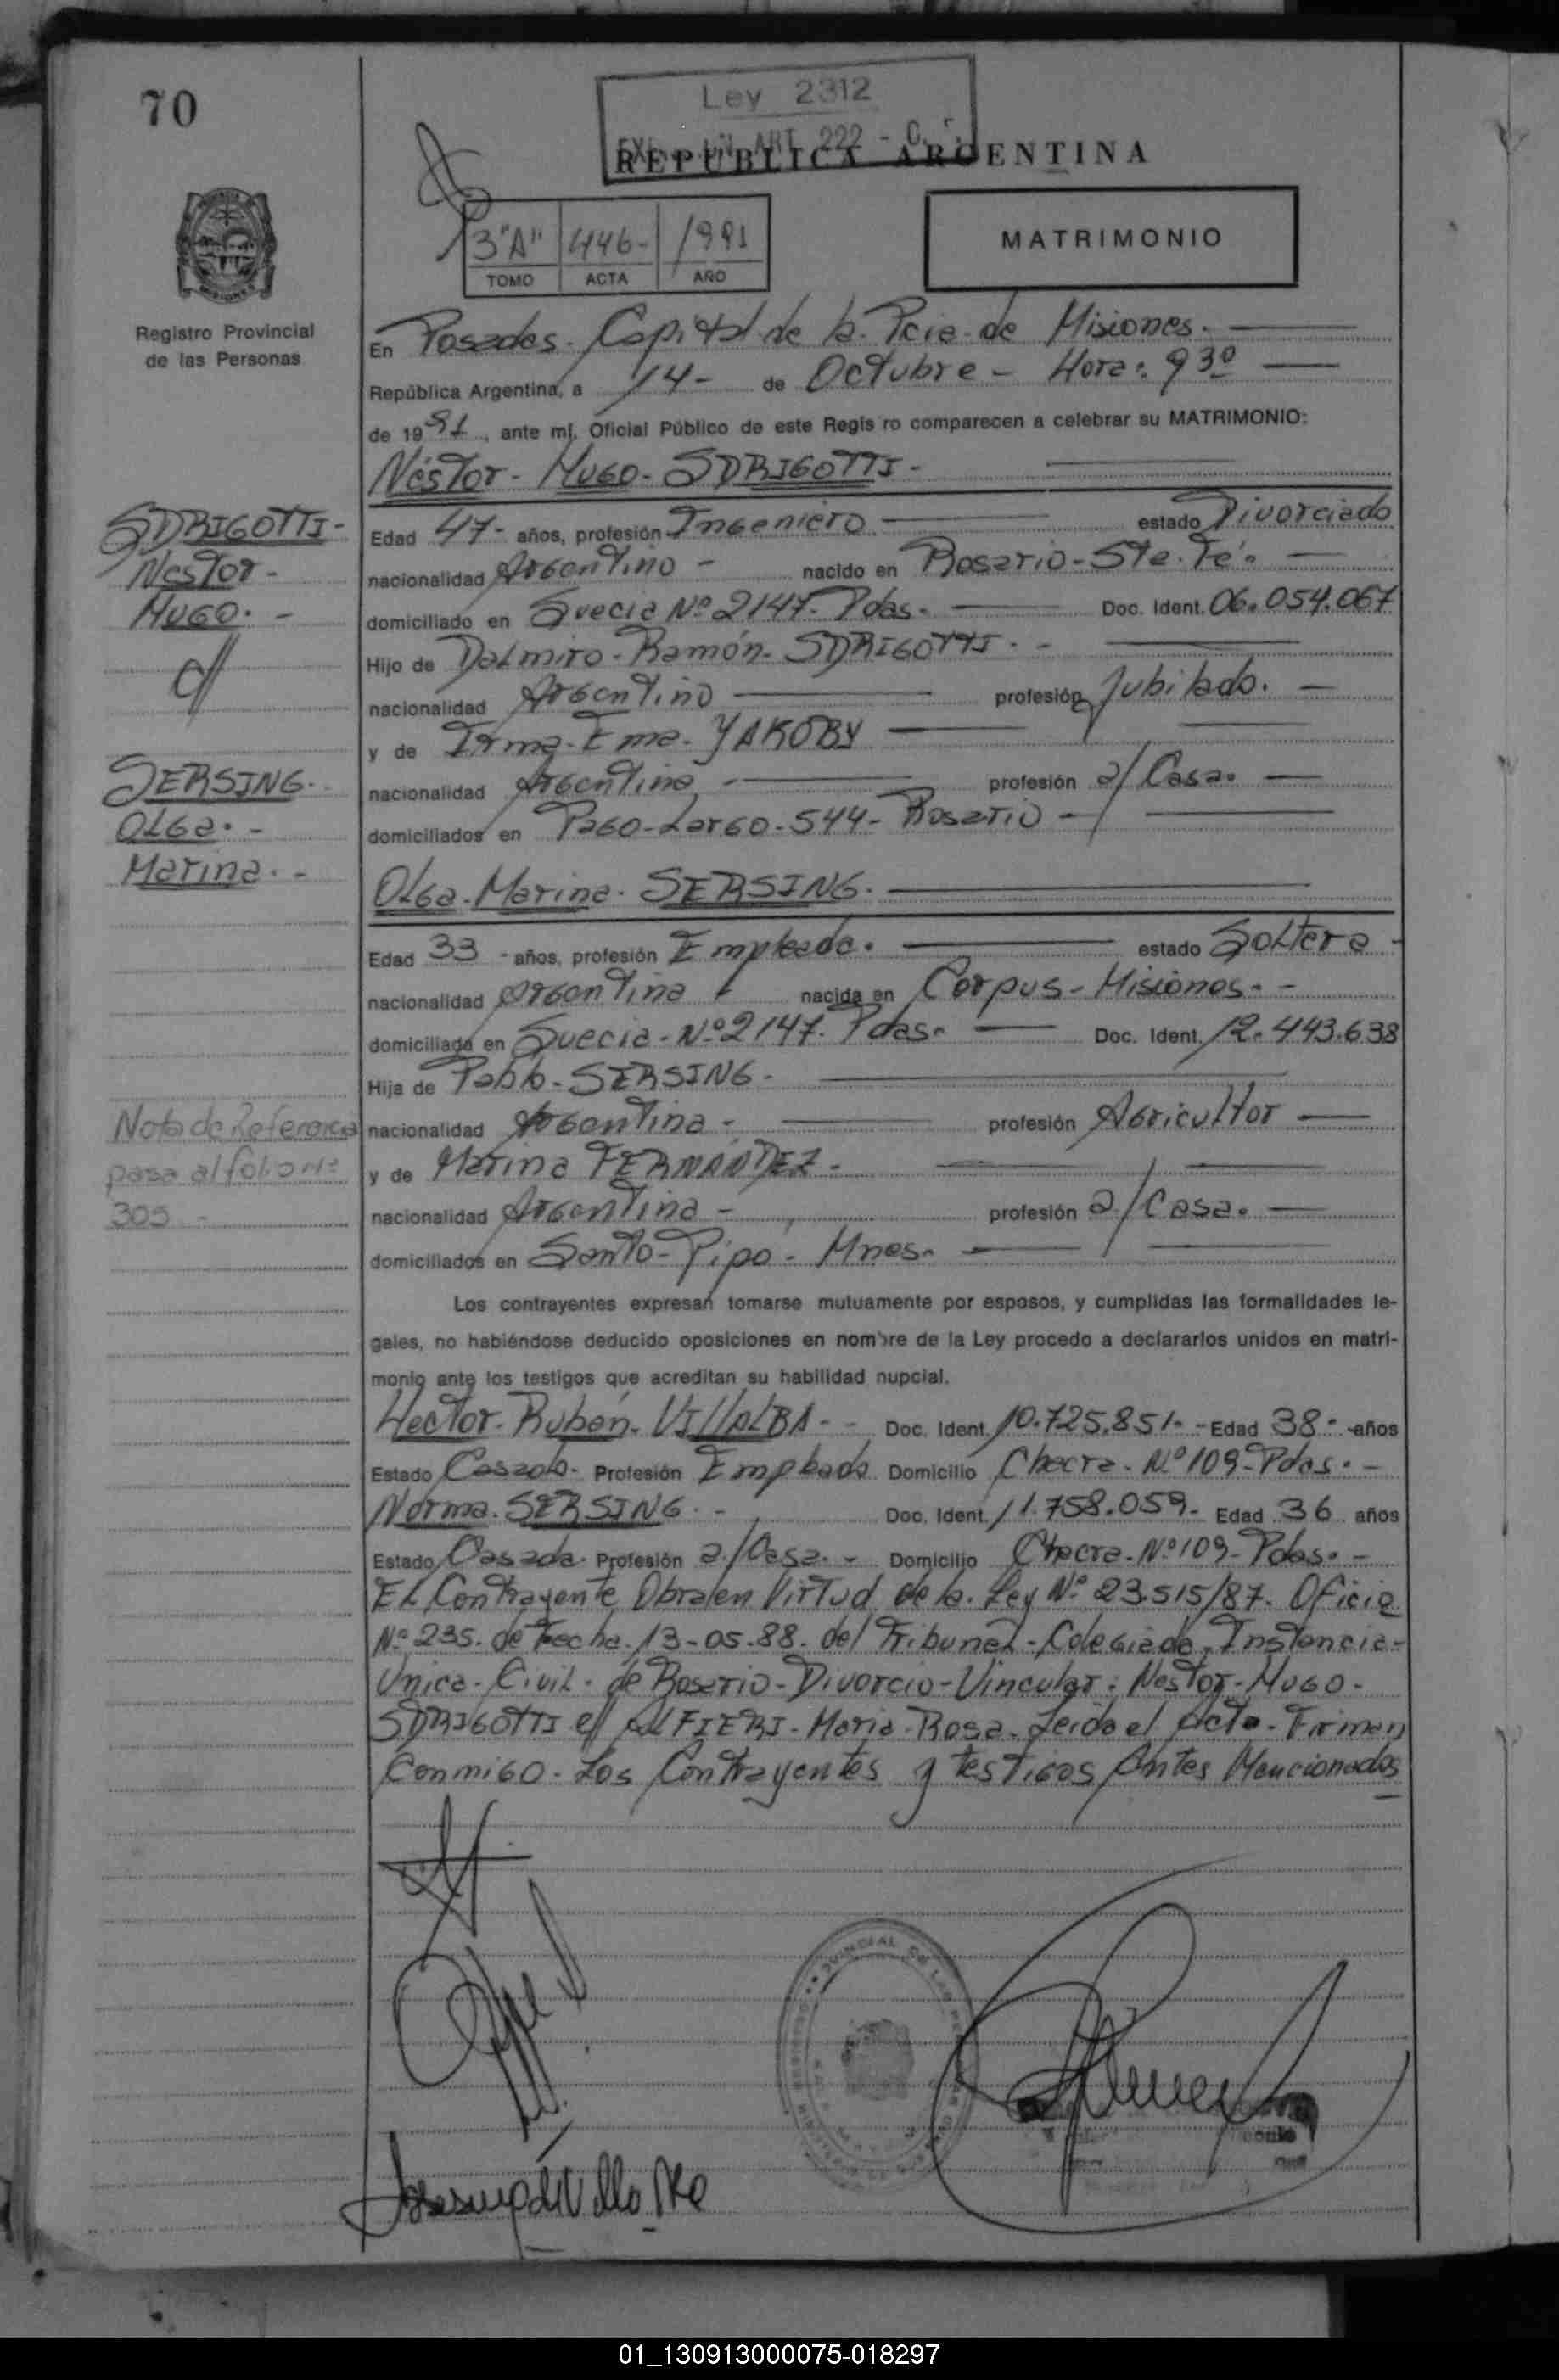 70
Ley 2312
ART. 222 - C.
REPUBLICA ARGENTINA
3"A" 446- 1991
TOMO ACTA AÑO
MATRIMONIO
Registro Provincial
de las Personas
En Posadas - Capital de la Pcia de Misiones. -
República Argentina, a 14- de Octubre - Hora: 9 30
de 1991, ante mí, Oficial Público de este Regis ro comparecen a celebrar su MATRIMONIO:
Néstor - Hugo - SDRIGOTTI -
SDRIGOTTI -
Nestor -
Hugo. -
c/
SERSING.
Olga. -
Marina. -
Edad 47- años, profesión Ingeniero - estado Divorciado
nacionalidad Argentino - nacido en Rosario - Sta. Fé. -
domiciliado en Suecia Nº 2147. Pdas. - Doc. Ident. 06.054.067
Hijo de Dalmiro - Ramón - SDRIGOTTI. -
nacionalidad Argentino - profesión Jubilado. -
y de Irma - Ema - YAKOBY -
nacionalidad Argentina - profesión a/ Casa. -
domiciliados en Pago - Largo - 544 - Rosario -
Olga - Marina - SERSING. -
Edad 33 - años, profesión Empleada. - estado Soltera -
nacionalidad Argentina - nacida en Corpus - Misiones. -
domiciliada en Suecia - Nº 2147. Pdas. - Doc. Ident. 12.443.638
Hija de Pablo - SERSING -
nacionalidad Argentina - profesión Agricultor -
y de Marina FERNANDEZ -
nacionalidad Argentina - profesión a/ Casa. -
domiciliados en Santo - Pipó - Mnes. -
Nota de Referencia
pasa al folio Nº
305 -
Los contrayentes expresan tomarse mutuamente por esposos, y cumplidas las formalidades le-
gales, no habiéndose deducido oposiciones en nombre de la Ley procedo a declararlos unidos en matri-
monio ante los testigos que acreditan su habilidad nupcial.
Hector - Rubén - VILLALBA - - Doc. Ident. 10.725.851. - Edad 38 - años
Estado Casado - Profesión Empleado Domicilio Chacra - Nº 109 - Pdas. -
Norma - SERSING - - Doc. Ident. 11.758.059 - Edad 36 años
Estado Casada - Profesión a/ Casa. - Domicilio Chacra - Nº 109 - Pdas. -
El Contrayente Obra en Virtud de la Ley Nº 23.515/87. Oficio
Nº 235. de Fecha 13-05-88. del Tribunal - Colegiado, Instancia -
Unica - Civil - de Rosario - Divorcio - Vincular: Nestor - Hugo -
SDRIGOTTI c/ ALFIERI - Maria - Rosa. Leida el Acta - Firman
Conmigo - Los Contrayentes y testigos Antes Mencionados
01_130913000075-018297